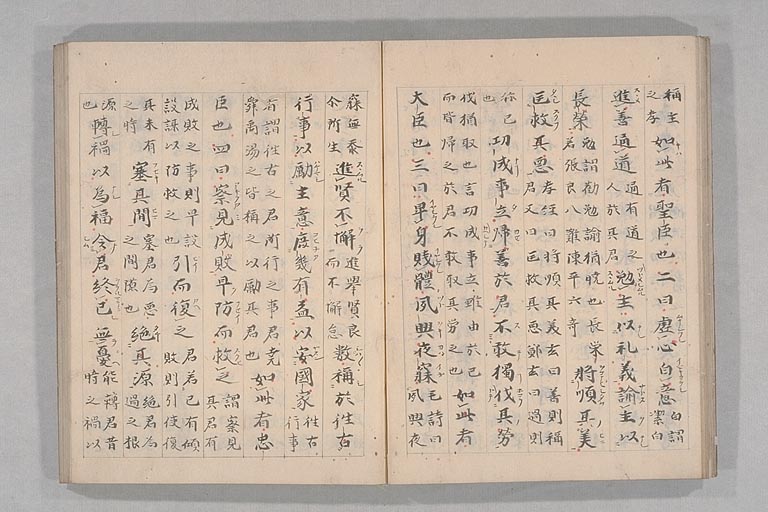 稱主之孝如此者聖臣也二曰虚心白意白謂潔白
進善通道通有道之人於其君勉主以礼義諭主以
長榮勉謂勸勉諭猶晓也長榮若張良八難陳平六奇將順其美
匡救其惡孝経曰將順其美玄曰善則稱君又曰匡救其惡鄭玄曰過則
稱己也功成事立歸善於君不敢獨伐其勞
伐猶取也言功成事立雖由於己而皆歸之於君不敢取其勞之也如此者
大臣也三曰卑身賤體夙興夜寐毛詩曰夙興夜
寐無忝尒所生進賢不懈進舉賢良而不懈怠數稱於往古
行事以勵主意庶幾有益以安國家往古行事
者謂往古之君所行之事君堯舜禹湯之皆稱之以勵其君也如此者忠
臣也四曰察見成敗早防而救之謂察見其君有
成敗之事則早設設謀以防救之也引而復之君若已有傾敗則引使復
其未有之時塞其間塞君為惡之間隙也絕其源絕君為過之根
源也轉禍以為福令君終已無憂能轉君昔時之禍以